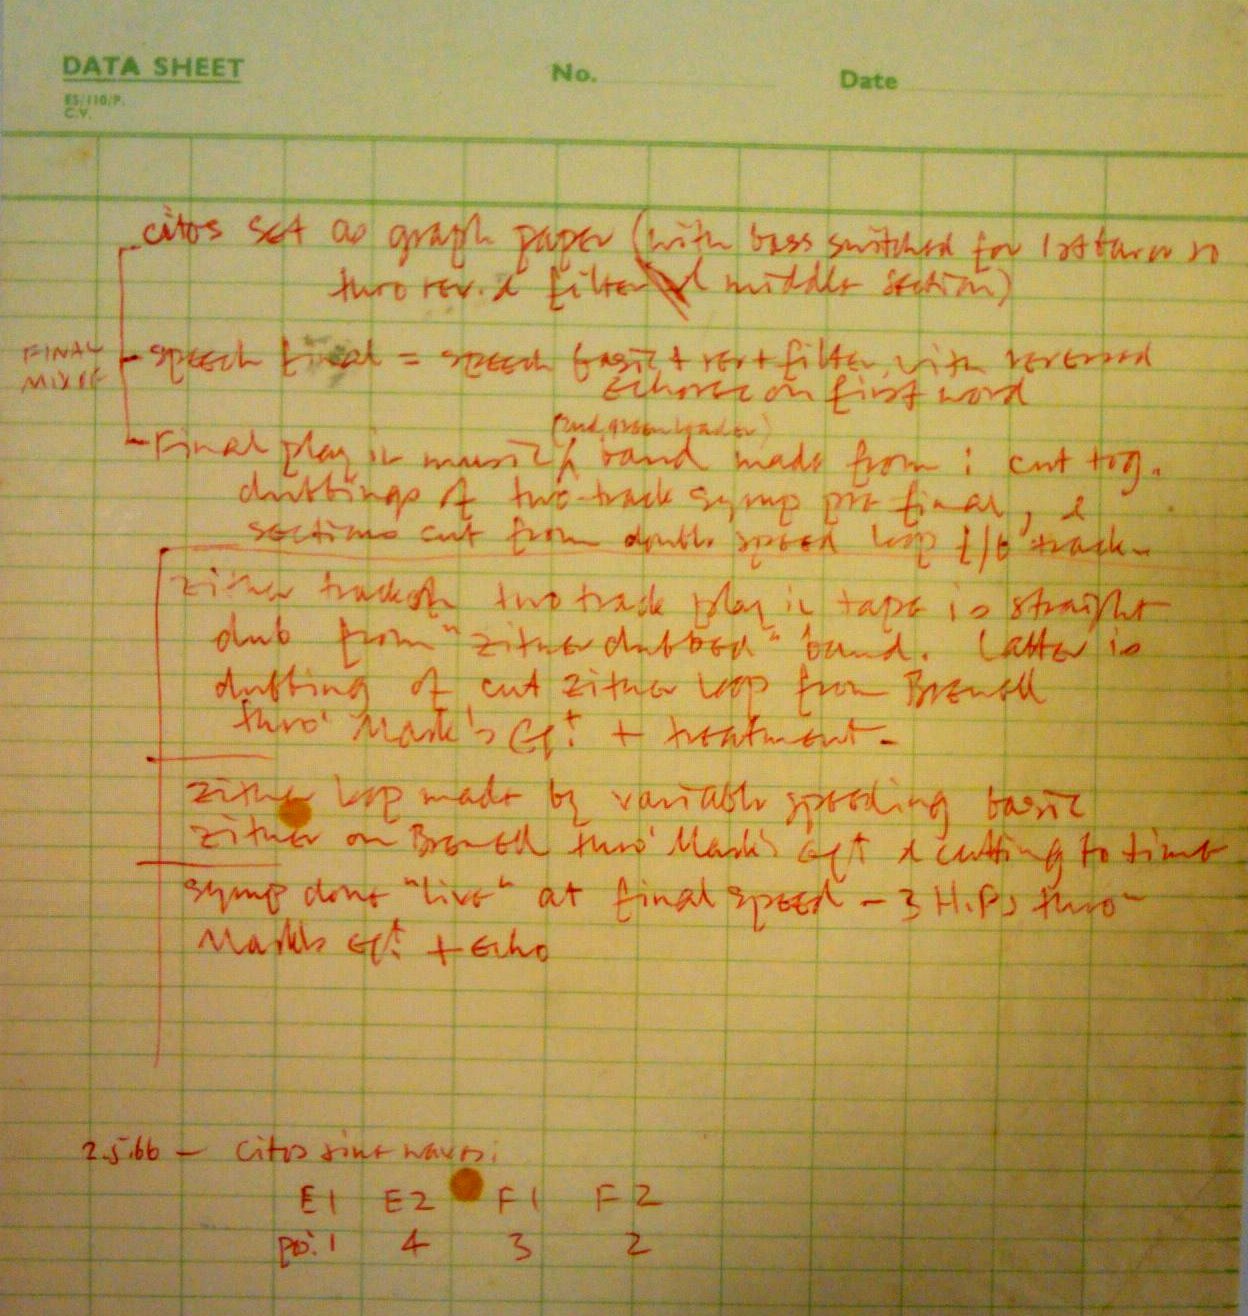 DATA SHEET
No.
Date
ES/110/P.
C.V.
citos set as graph paper (with bass switched for 1st
thro rev. & filter middle section)
FINAL
MIX
speech final = speech basic + rev + filter, with reversed
echoes on first word
(and green leader)
Final play in music band made from: cut tog.
dubbings of two-track symp pre final, &
sections cut from double speed loop f/b track.
zither track of two track play in tape is straight
dub from "zither dubbed" band. Latter is
dubbing of cut zither loop from Brenell
thro' Mark's eqt + treatment.
zither loop made by variable speeding basic
zither on Brenell thro' Mark's eqt & cutting to time
symp done "live" at final speed – 3 H.Ps thro
Mark's eqt + echo
2.5.66 – Citos sine waves:
E1 E2 F1 F2
po. 1 4 3 2